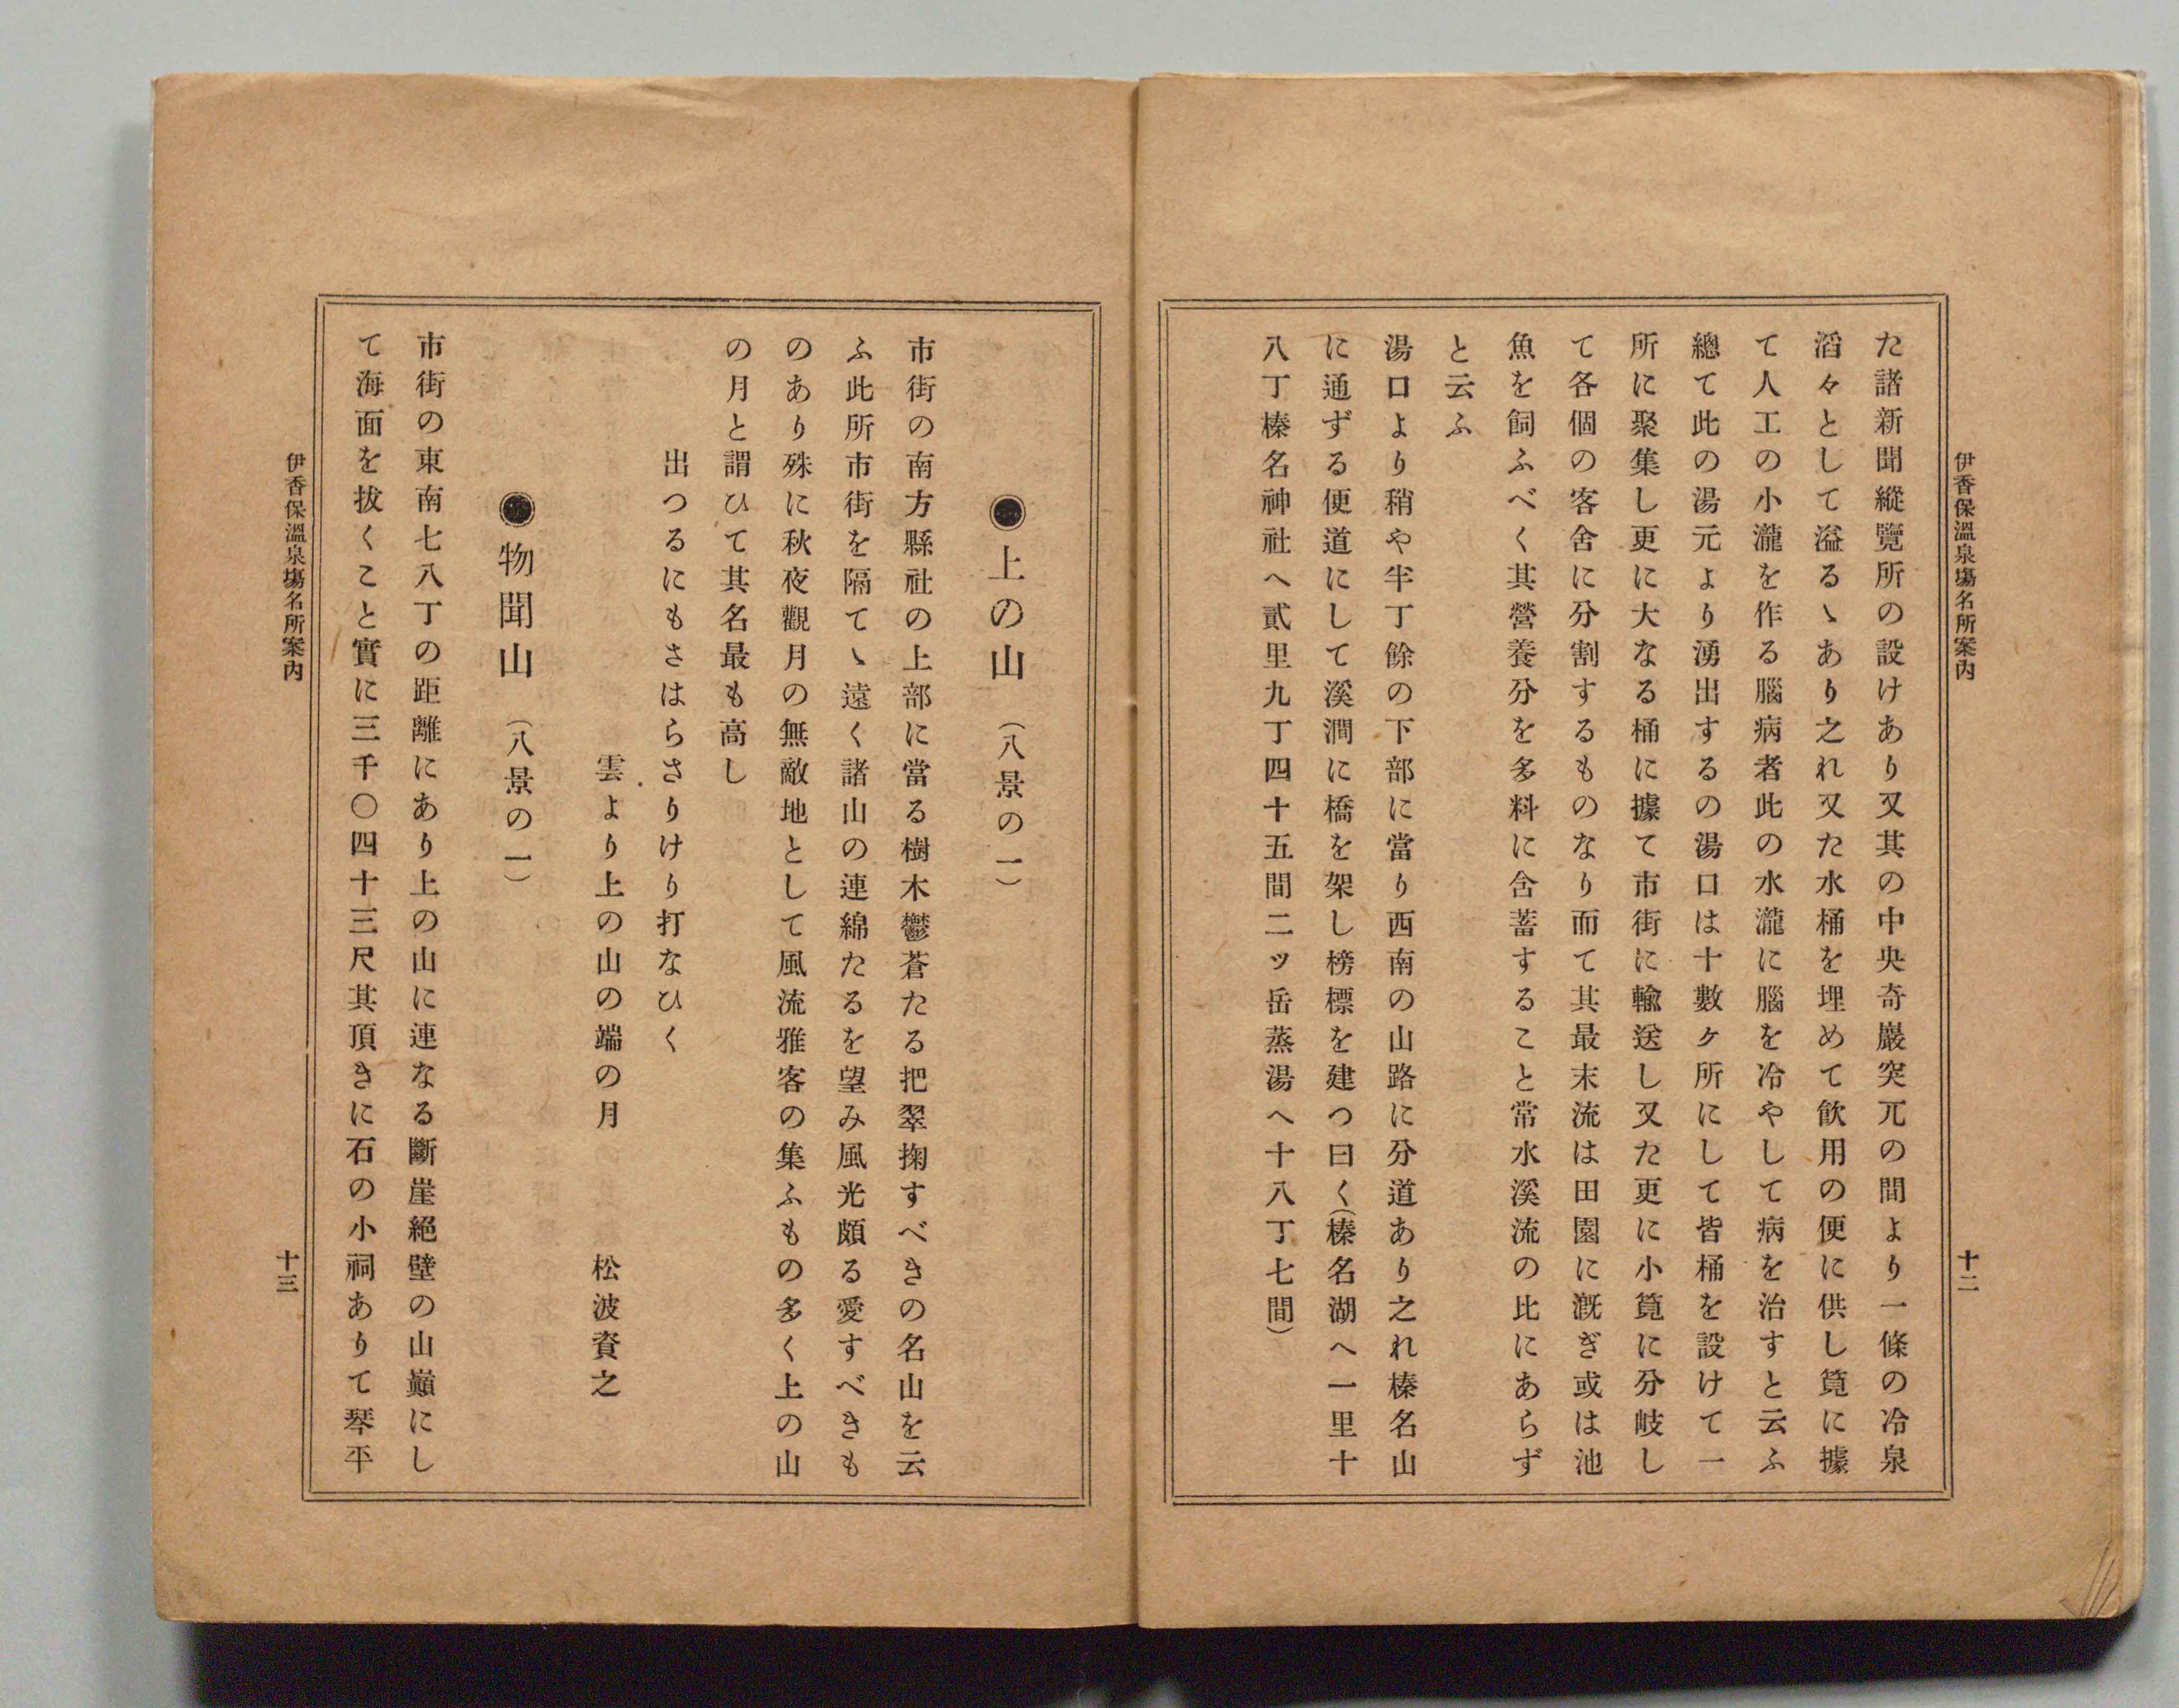 伊香保溫泉塲名所案內
十二
た諸新聞縱覽所の設けあり又其の中央奇巖突兀の間より一條の冷泉
滔々として溢るゝあり之れ又た水桶を埋めて飮用の便に供し筧に據
て人工の小瀧を作る腦病者此の水瀧に腦を冷やして病を治すと云ふ
總て此の湯元より湧出するの湯口は十數ヶ所にして皆桶を設けて一
所に聚集し更に大なる桶に據て市街に輸送し又た更に小筧に分岐し
て各個の客舍に分割するものなり而て其最末流は田園に漑ぎ或は池
魚を飼ふべく其營養分を多料に含蓄すること常水溪流の比にあらず
と云ふ
湯口より稍や半丁餘の下部に當り西南の山路に分道あり之れ榛名山
に通ずる便道にして溪澗に橋を架し榜標を建つ曰く(榛名湖へ一里十
八丁榛名神社へ貳里九丁四十五間二ッ岳蒸湯へ十八丁七間)
◉上の山 (八景の一)
市街の南方縣社の上部に當る樹木鬱蒼たる把翠掬すべきの名山を云
ふ此所市街を隔てゝ遠く諸山の連綿たるを望み風光頗る愛すべきも
のあり殊に秋夜觀月の無敵地として風流雅客の集ふもの多く上の山
の月と謂ひて其名最も高し
出つるにもさはらさりけり打なひく
雲より上の山の端の月 松波資之
◉物聞山 (八景の一)
市街の東南七八丁の距離にあり上の山に連なる斷崖絕壁の山巓にし
て海面を拔くこと實に三千〇四十三尺其頂きに石の小祠ありて琴平
伊香保溫泉塲名所案內
十三